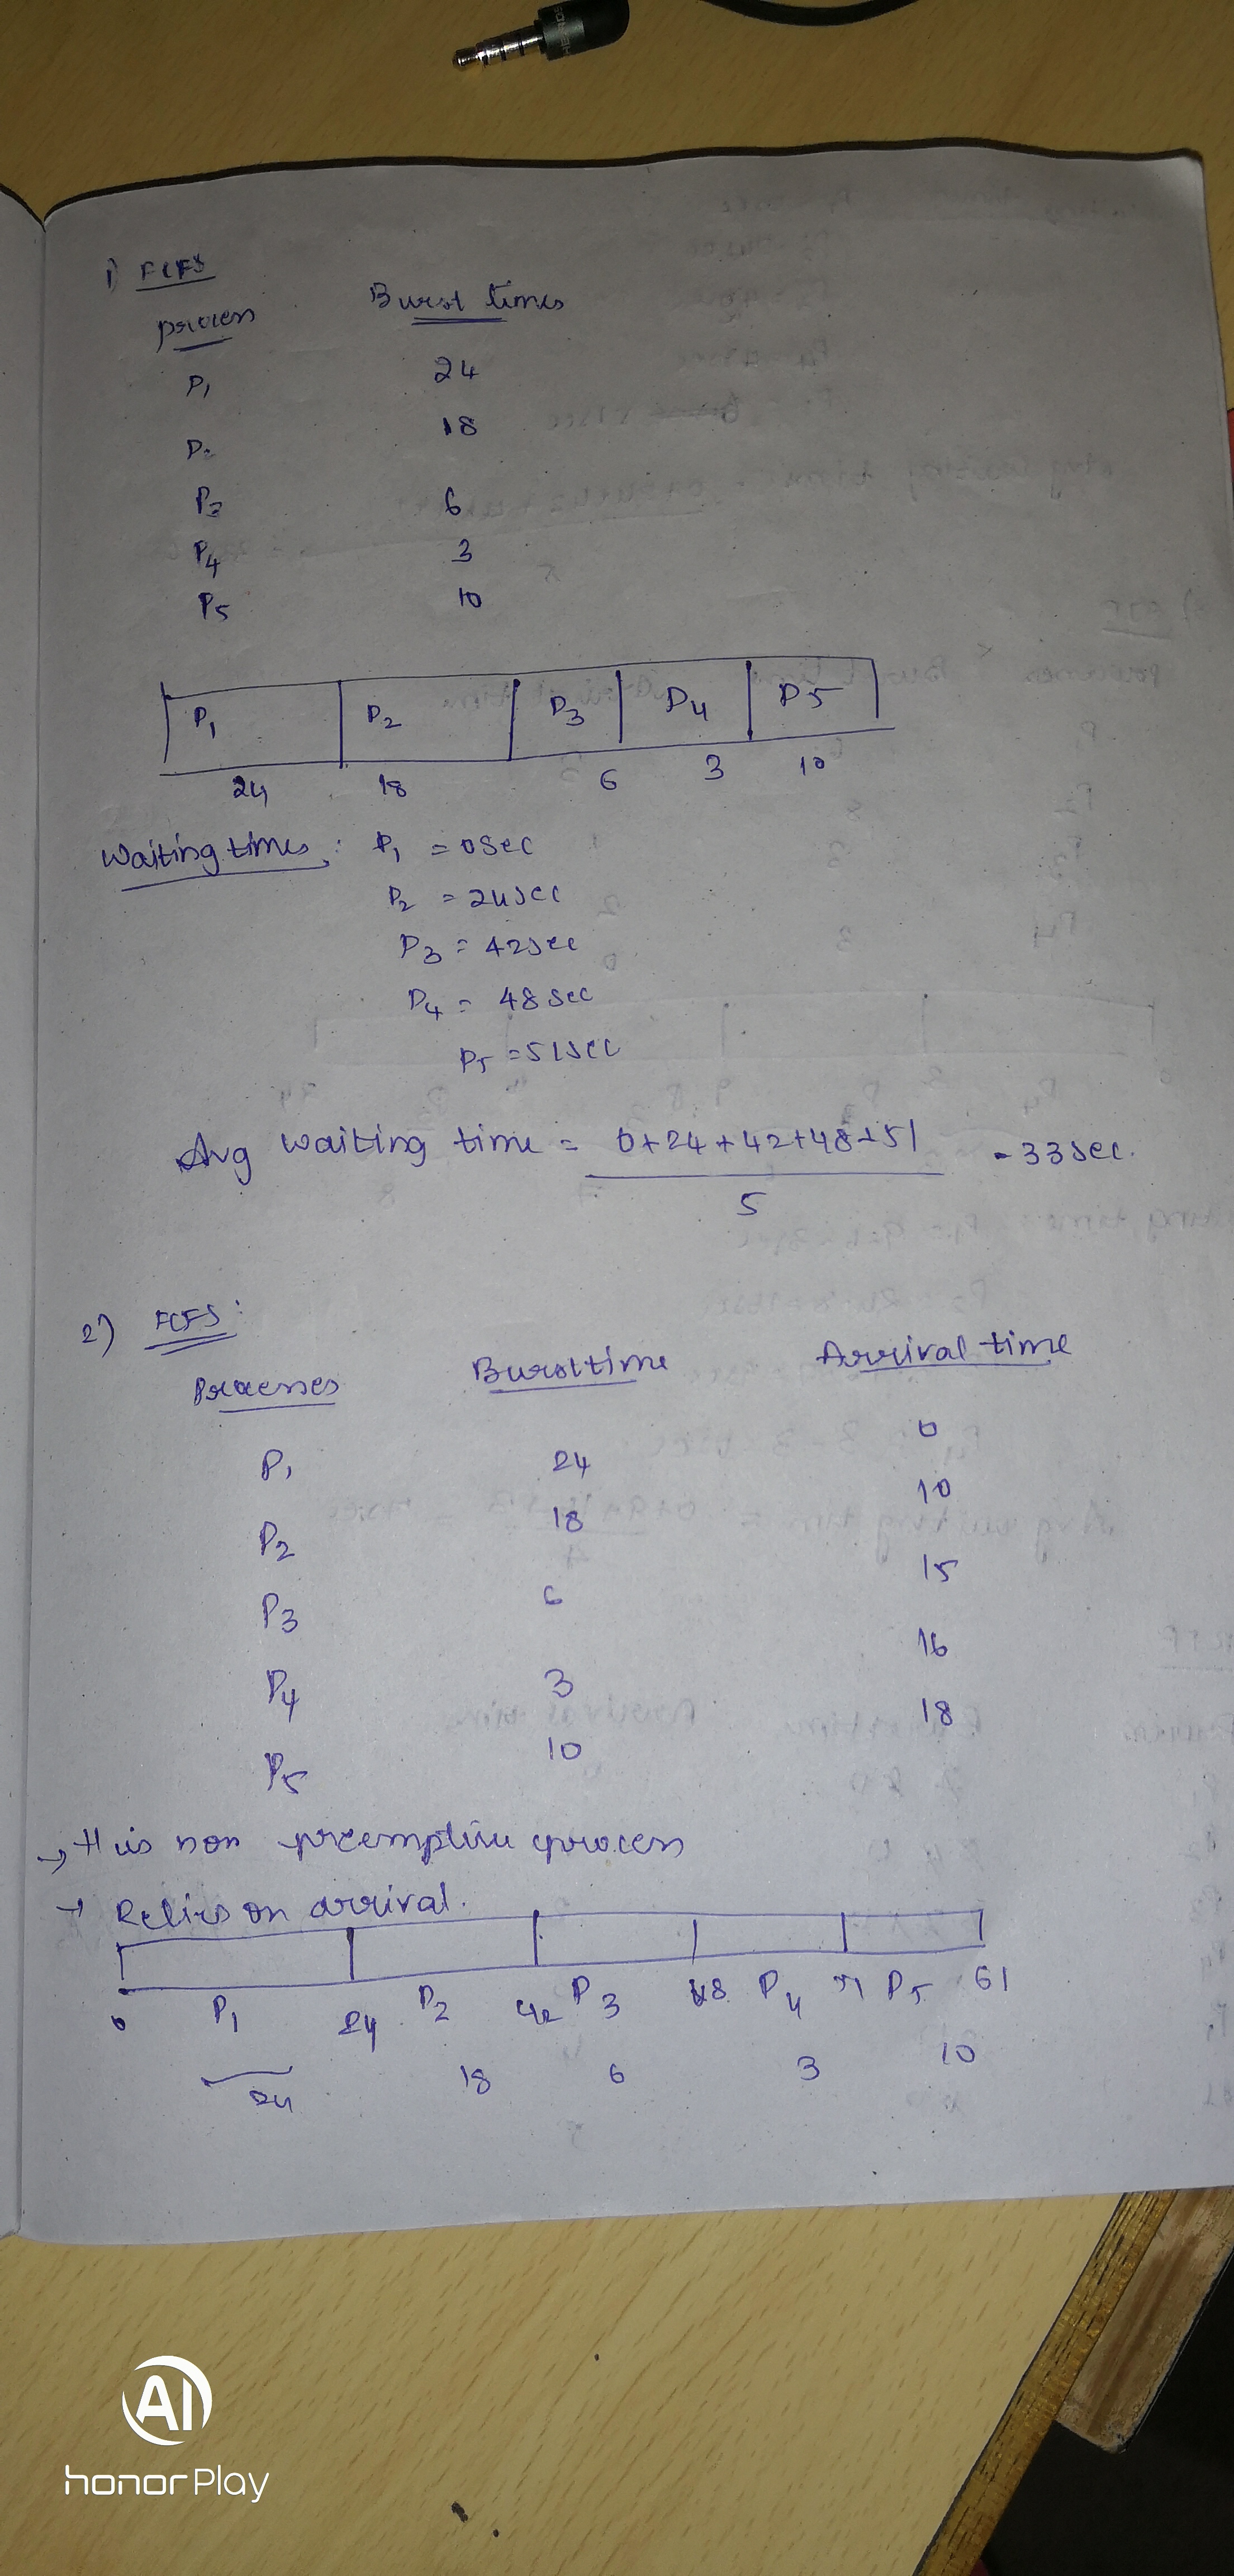 1) FCFS
process Burst times
P1 24
P2 18
P3 6
P4 3
P5 10
P1 P2 P3 P4 P5
24 18 6 3 10
Waiting times : P1 = 0sec
P2 = 24sec
P3 = 42sec
P4 = 48sec
P5 = 51sec
Avg waiting time = 0+24+42+48+51 = 33sec.
5
2) FCFS :
Processes Burst time Arrival time
P1 24 0
P2 18 10
P3 6 15
P4 3 16
P5 10 18
→ It is non preemptive process
→ Relies on arrival.
0 P1 24 P2 42 P3 48 P4 51 P5 61
24 18 6 3 10
AI
honor Play